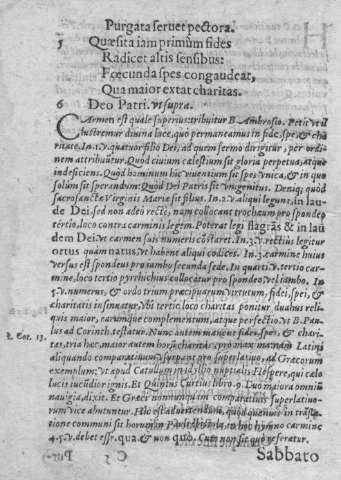 Purgata seruet pectora.
5 Quæsita iam primùm fides
Radicet altis sensibus:
Fœcunda spes congaudeat,
Qua maior extat charitas.
6 Deo Patri. vt supra.
CArmen est quale superius: tribuitur B. Ambrosio. Petit vt il
lustremur diuina luce, quò permaneamus in fide, spe, & cha
ritate. In .1. v. quatuor filio Dei, ad quem sermo dirigitur, per ordi
nem attribuūtur. Quòd ciuium cælestium sit gloria perpetua, atque
indeficiens. Quòd hominum hic viuentium sit spes vnica, & in quo
solùm sit sperandum: Quòd Dei Patris sit vnigenitus. Deniq; quòd
sacrosanctæ Virginis Mariæ sit filius. In .2. v. aliqui legunt, in lau
de Dei. sed non adeò rectè, nam collocant trochæum pro spondeo
tertio, loco contra carminis legem. Poterat legi flagrās & in lau
dem Dei. vt carmen suis numeris cōstaret. In .3. v. rectius legitur
ortus quàm natus, vt habent aliqui codices. In .3. carmine huius
versus est spondeus pro iambo secunda sede. In quarti .v. tertio car-
mine, loco tertio pyrrhichius collocatur pro spondeo vel iambo. In
5. v. numerus, & ordo trium præcipuarum virtutum, fidei, spei, &
charitatis insinuatur. Vbi tertio loco charitas ponitur, duabus reli-
quis maior, earumque complementum, atque perfectio. vt B. Pau-
1. Cor. 13. lus ad Corinth. testatur. Nunc autem manent fides, spes, & chari-
tas, tria hæc, maior autem horū charitas: pro maxima nam Latini
aliquando comparatiuum vsurpant pro superlatiuo, ad Græcorum
exemplum: vt apud Catullum in nuptialis: Hespere, qui cæ
lo lucis iucūdior ignis. Et Quintus Curtius libro .9. Duo maiora omniū
nauigia, dixit. Et Græci nonnunquam comparatiuis superlatiuo-
rum vice abutuntur. Hîc est aduertendum, quòd quenuis in trāsla
tione communi sit horum in hoc hymno carmine
4. 5. v. debet esse. qua. & non quò. Cum non sit quò referatur.
Pur- C 5 Sabbato